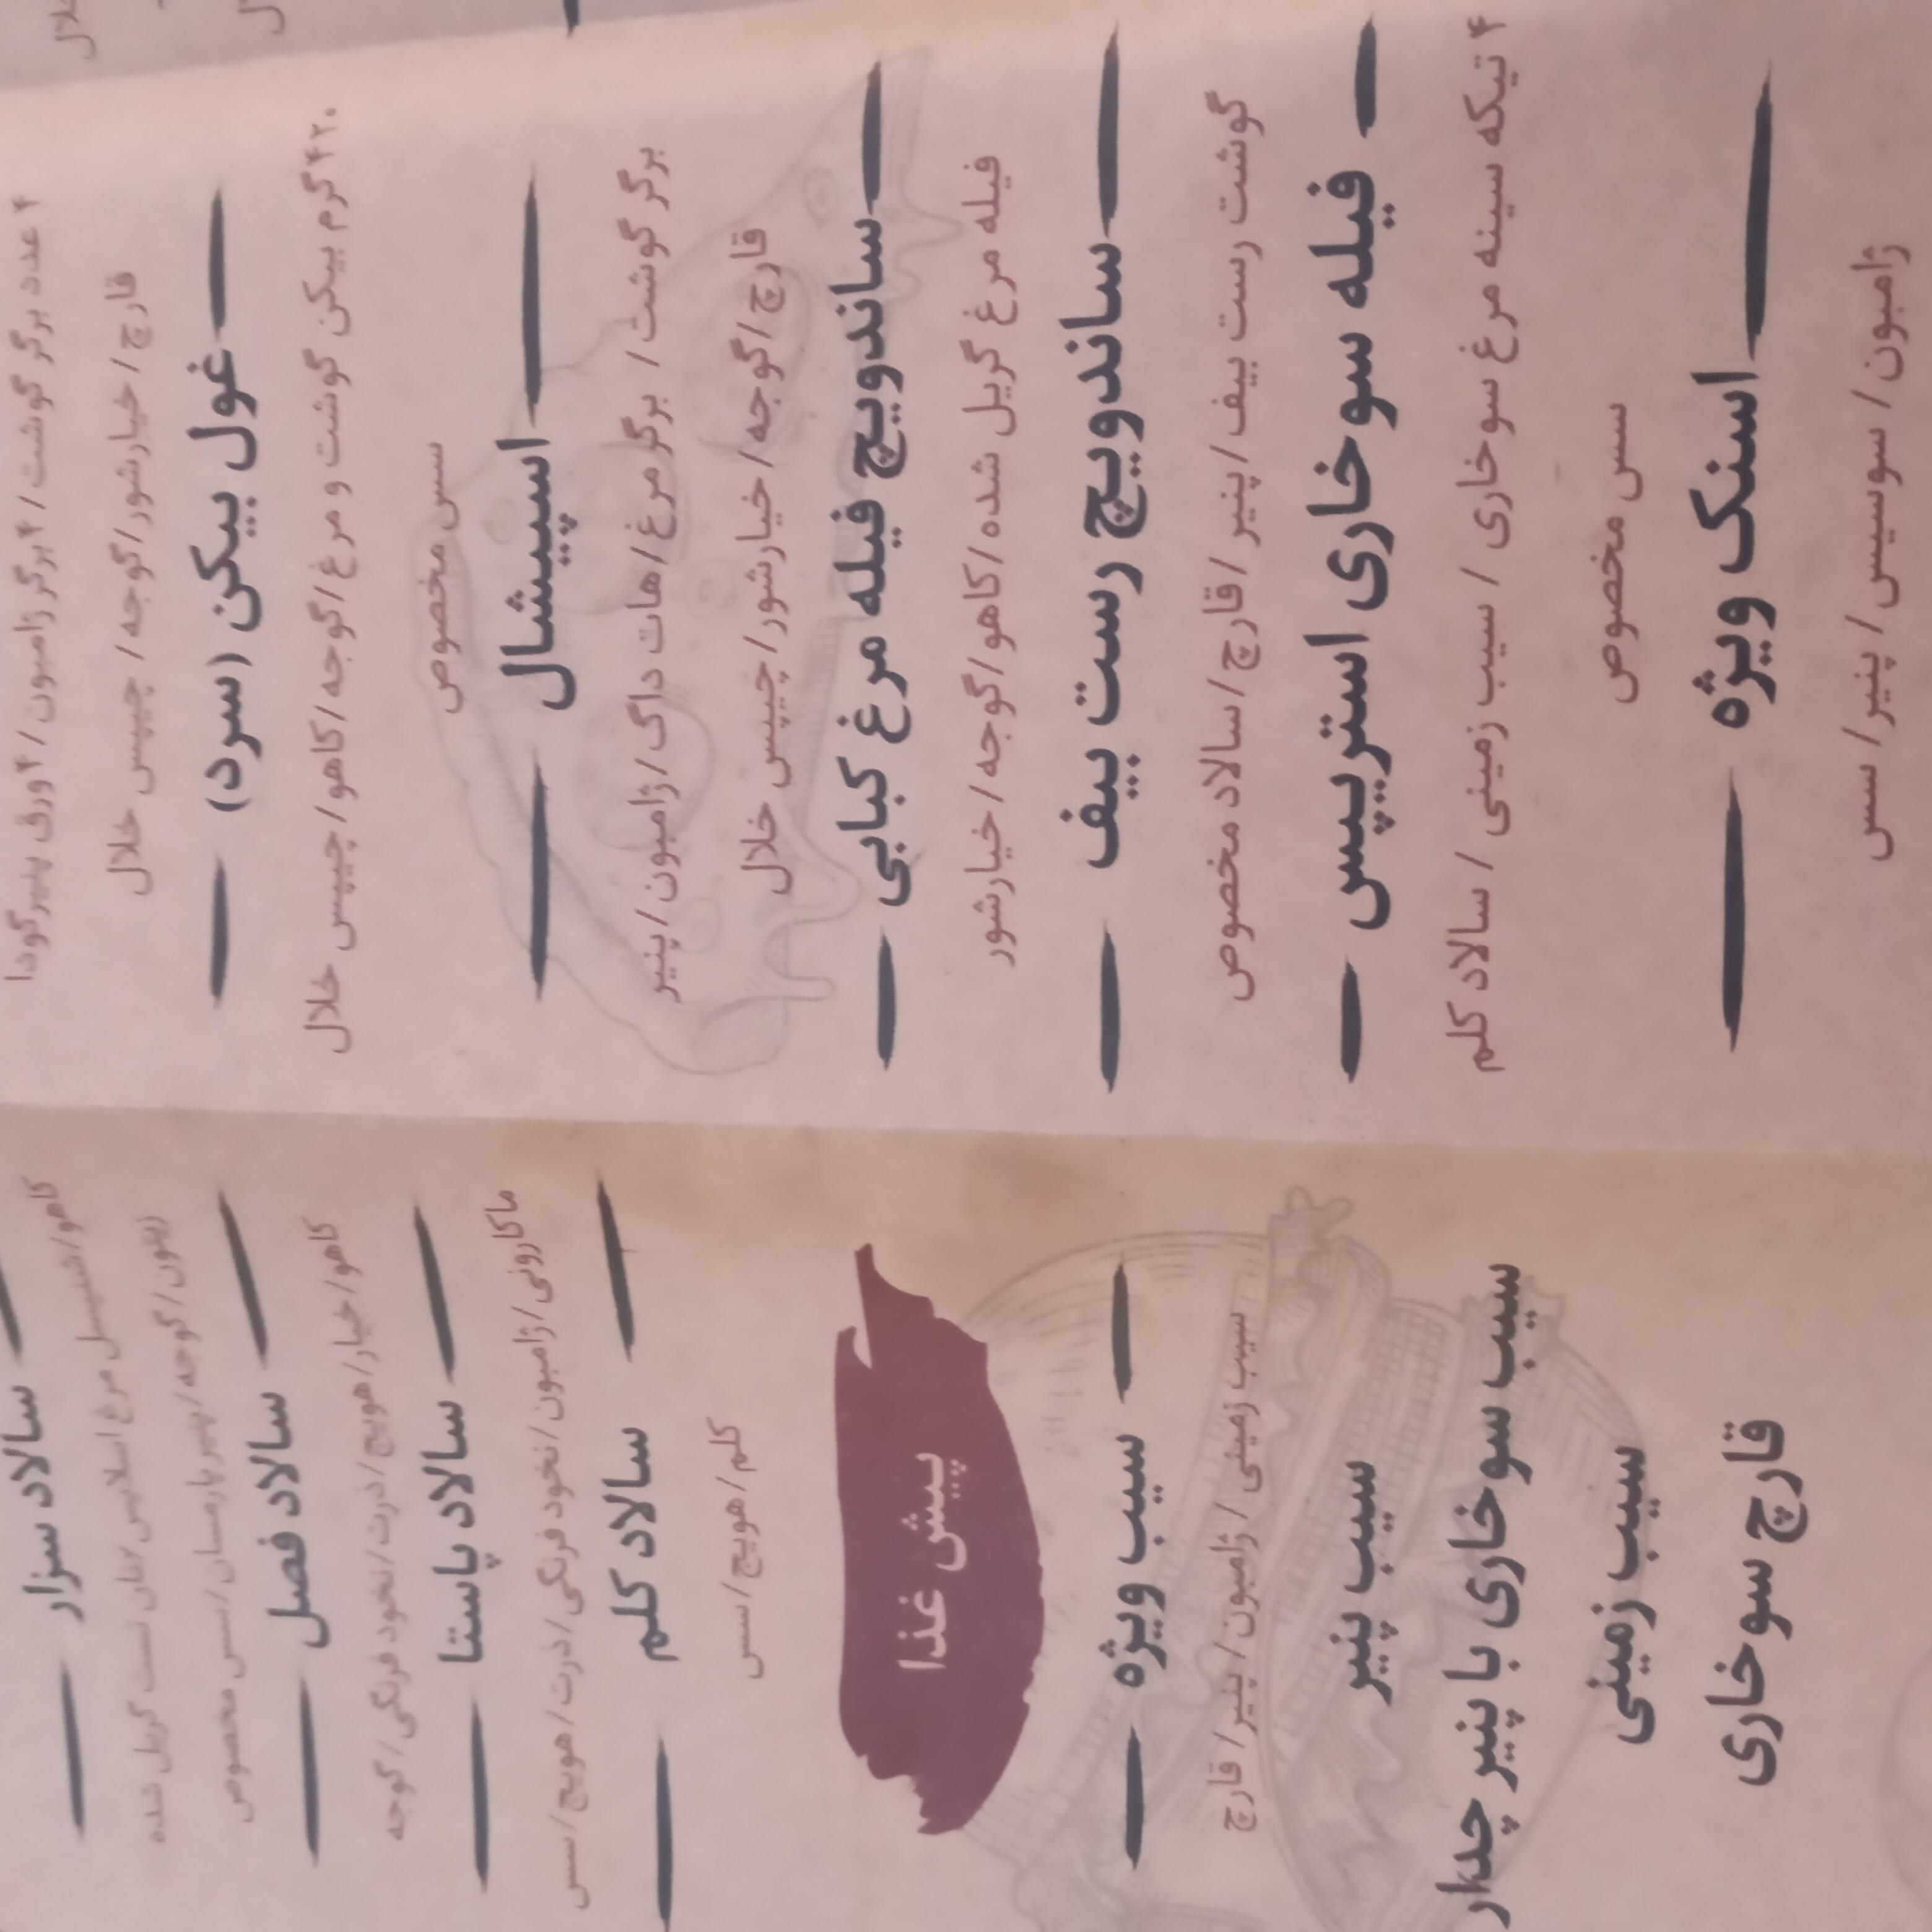 ۴ عدد برگر گوشت / ۴ برگر ژامبون / ۴ ورق پنیر گودا
قارچ / خیارشور / گوجه / چیپس خلال
غول بیکن (سرد)
۴۲۰ گرم بیکن گوشت و مرغ / گوجه / کاهو / چیپس خلال
سس مخصوص
اسپیشال
برگر گوشت / برگر مرغ / هات داگ / ژامبون / پنیر
قارچ / گوجه / خیارشور / چیپس خلال
ساندویچ فیله مرغ کبابی
فیله مرغ گریل شده / کاهو / گوجه / خیارشور
ساندویچ رست بیف
گوشت رست بیف / پنیر / قارچ / سالاد مخصوص
فیله سوخاری استریپس
۴ تیکه سینه مرغ سوخاری / سیب زمینی / سالاد کلم
سس مخصوص
اسنک ویژه
ژامبون / سوسیس / پنیر / سس
سالاد سزار
کاهو / شنیسل مرغ / اسلایس نان تست گریل شده
زیتون / گوجه / پنیر پارمسان / سس مخصوص
سالاد فصل
کاهو / خیار / هویج / ذرت / نخود فرنگی / گوجه
سالاد پاستا
ماکارونی / ژامبون / نخود فرنگی / ذرت / هویج / سس
سالاد کلم
کلم / هویج / سس
پیش غذا
سیب ویژه
سیب زمینی / ژامبون / پنیر / قارچ
سیب پنیر
سیب سوخاری با پنیر چدار
سیب زمینی
قارچ سوخاری